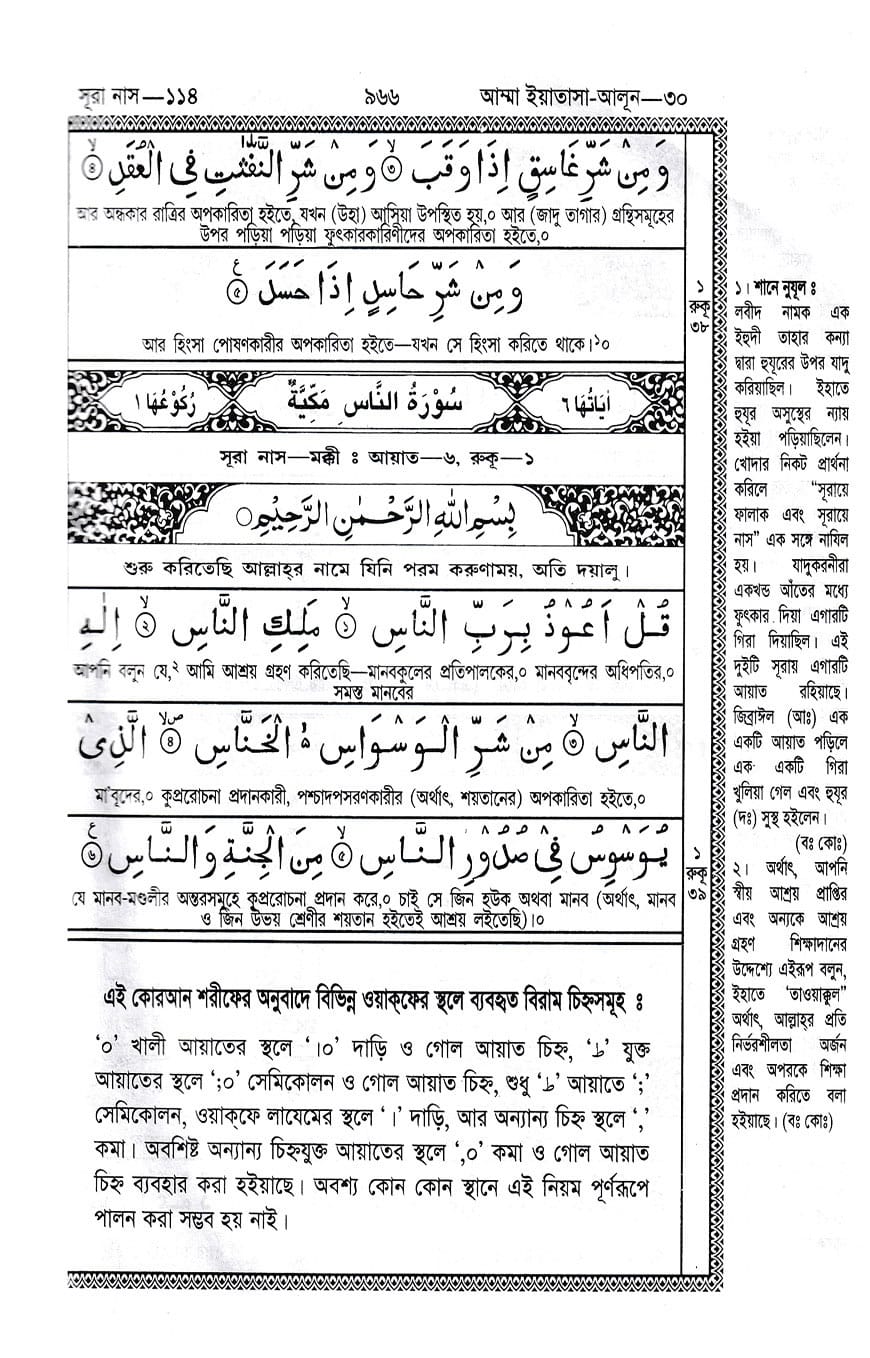 সূরা নাস—১১৪ ৯৬৬ আম্মা ইয়াতাসা-আলূন—৩০
وَمِنْ شَرِّ غَاسِقٍ اِذَا وَقَبَ ۙ﴿۳﴾ وَمِنْ شَرِّ النَّفّٰثٰتِ فِی الْعُقَدِ ۙ﴿۴﴾
আর অন্ধকার রাত্রির অপকারিতা হইতে, যখন (উহা) আসিয়া উপস্থিত হয়,০ আর (জাদু তাগার) গ্রন্থিসমূহের
উপর পড়িয়া পড়িয়া ফুৎকারকারিণীদের অপকারিতা হইতে,০
وَمِنْ شَرِّ حَاسِدٍ اِذَا حَسَدَ ﴿۵﴾ ع
আর হিংসা পোষণকারীর অপকারিতা হইতে—যখন সে হিংসা করিতে থাকে।১০
১
রুকূ
৩৮
اٰيَاتُهَا ٦ سُوْرَةُ النَّاسِ مَكِّيَّةٌ رُكُوْعُهَا ١
সূরা নাস—মক্কী ঃ আয়াত—৬, রুকূ—১
بِسْمِ اللّٰهِ الرَّحْمٰنِ الرَّحِيْمِ
শুরু করিতেছি আল্লাহ্‌র নামে যিনি পরম করুণাময়, অতি দয়ালু।
قُلْ اَعُوْذُ بِرَبِّ النَّاسِ ۙ﴿۱﴾ مَلِكِ النَّاسِ ۙ﴿۲﴾ اِلٰهِ
আপনি বলুন যে,২ আমি আশ্রয় গ্রহণ করিতেছি—মানবকুলের প্রতিপালকের,০ মানববৃন্দের অধিপতির,০
সমস্ত মানবের
النَّاسِ ۙ﴿۳﴾ مِنْ شَرِّ الْوَسْوَاسِ ۙ الْخَنَّاسِ ۪ۙ﴿۴﴾ الَّذِیْ
মা'বূদের,০ কুপ্ররোচনা প্রদানকারী, পশ্চাদপসরণকারীর (অর্থাৎ, শয়তানের) অপকারিতা হইতে,০
يُوَسْوِسُ فِیْ صُدُوْرِ النَّاسِ ۙ﴿۵﴾ مِنَ الْجِنَّةِ وَالنَّاسِ ﴿۶﴾ ع
যে মানব-মণ্ডলীর অন্তরসমূহে কুপ্ররোচনা প্রদান করে,০ চাই সে জিন হউক অথবা মানব (অর্থাৎ, মানব
ও জিন উভয় শ্রেণীর শয়তান হইতেই আশ্রয় লইতেছি)।০
১
রুকূ
৩৯
এই কোরআন শরীফের অনুবাদে বিভিন্ন ওয়াক্‌ফের স্থলে ব্যবহৃত বিরাম চিহ্নসমূহ ঃ
‘০’ খালী আয়াতের স্থলে ‘।০’ দাড়ি ও গোল আয়াত চিহ্ন, ‘ط’ যুক্ত
আয়াতের স্থলে ‘;০’ সেমিকোলন ও গোল আয়াত চিহ্ন, শুধু ‘ط’ আয়াতে ‘;’
সেমিকোলন, ওয়াক্‌ফে লাযেমের স্থলে ‘।’ দাড়ি, আর অন্যান্য চিহ্ন স্থলে ‘,’
কমা। অবশিষ্ট অন্যান্য চিহ্নযুক্ত আয়াতের স্থলে ‘,০’ কমা ও গোল আয়াত
চিহ্ন ব্যবহার করা হইয়াছে। অবশ্য কোন কোন স্থানে এই নিয়ম পূর্ণরূপে
পালন করা সম্ভব হয় নাই।
১। শানে নুযূল ঃ
লবীদ নামক এক
ইহুদী তাহার কন্যা
দ্বারা হুযূরের উপর যাদু
করিয়াছিল। ইহাতে
হুযূর অসুস্থের ন্যায়
হইয়া পড়িয়াছিলেন।
খোদার নিকট প্রার্থনা
করিলে "সূরায়ে
ফালাক এবং সূরায়ে
নাস" এক সঙ্গে নাযিল
হয়। যাদুকরনীরা
একখন্ড আঁতের মধ্যে
ফুৎকার দিয়া এগারটি
গিরা দিয়াছিল। এই
দুইটি সূরায় এগারটি
আয়াত রহিয়াছে।
জিব্রাঈল (আঃ) এক
একটি আয়াত পড়িলে
এক একটি গিরা
খুলিয়া গেল এবং হুযূর
(দঃ) সুস্থ হইলেন।
(বঃ কোঃ)
২। অর্থাৎ, আপনি
স্বীয় আশ্রয় প্রাপ্তির
এবং অন্যকে আশ্রয়
গ্রহণ শিক্ষাদানের
উদ্দেশ্যে এইরূপ বলুন,
ইহাতে ‘তাওয়াক্কুল"
অর্থাৎ, আল্লাহ্‌র প্রতি
নির্ভরশীলতা অর্জন
এবং অপরকে শিক্ষা
প্রদান করিতে বলা
হইয়াছে। (বঃ কোঃ)